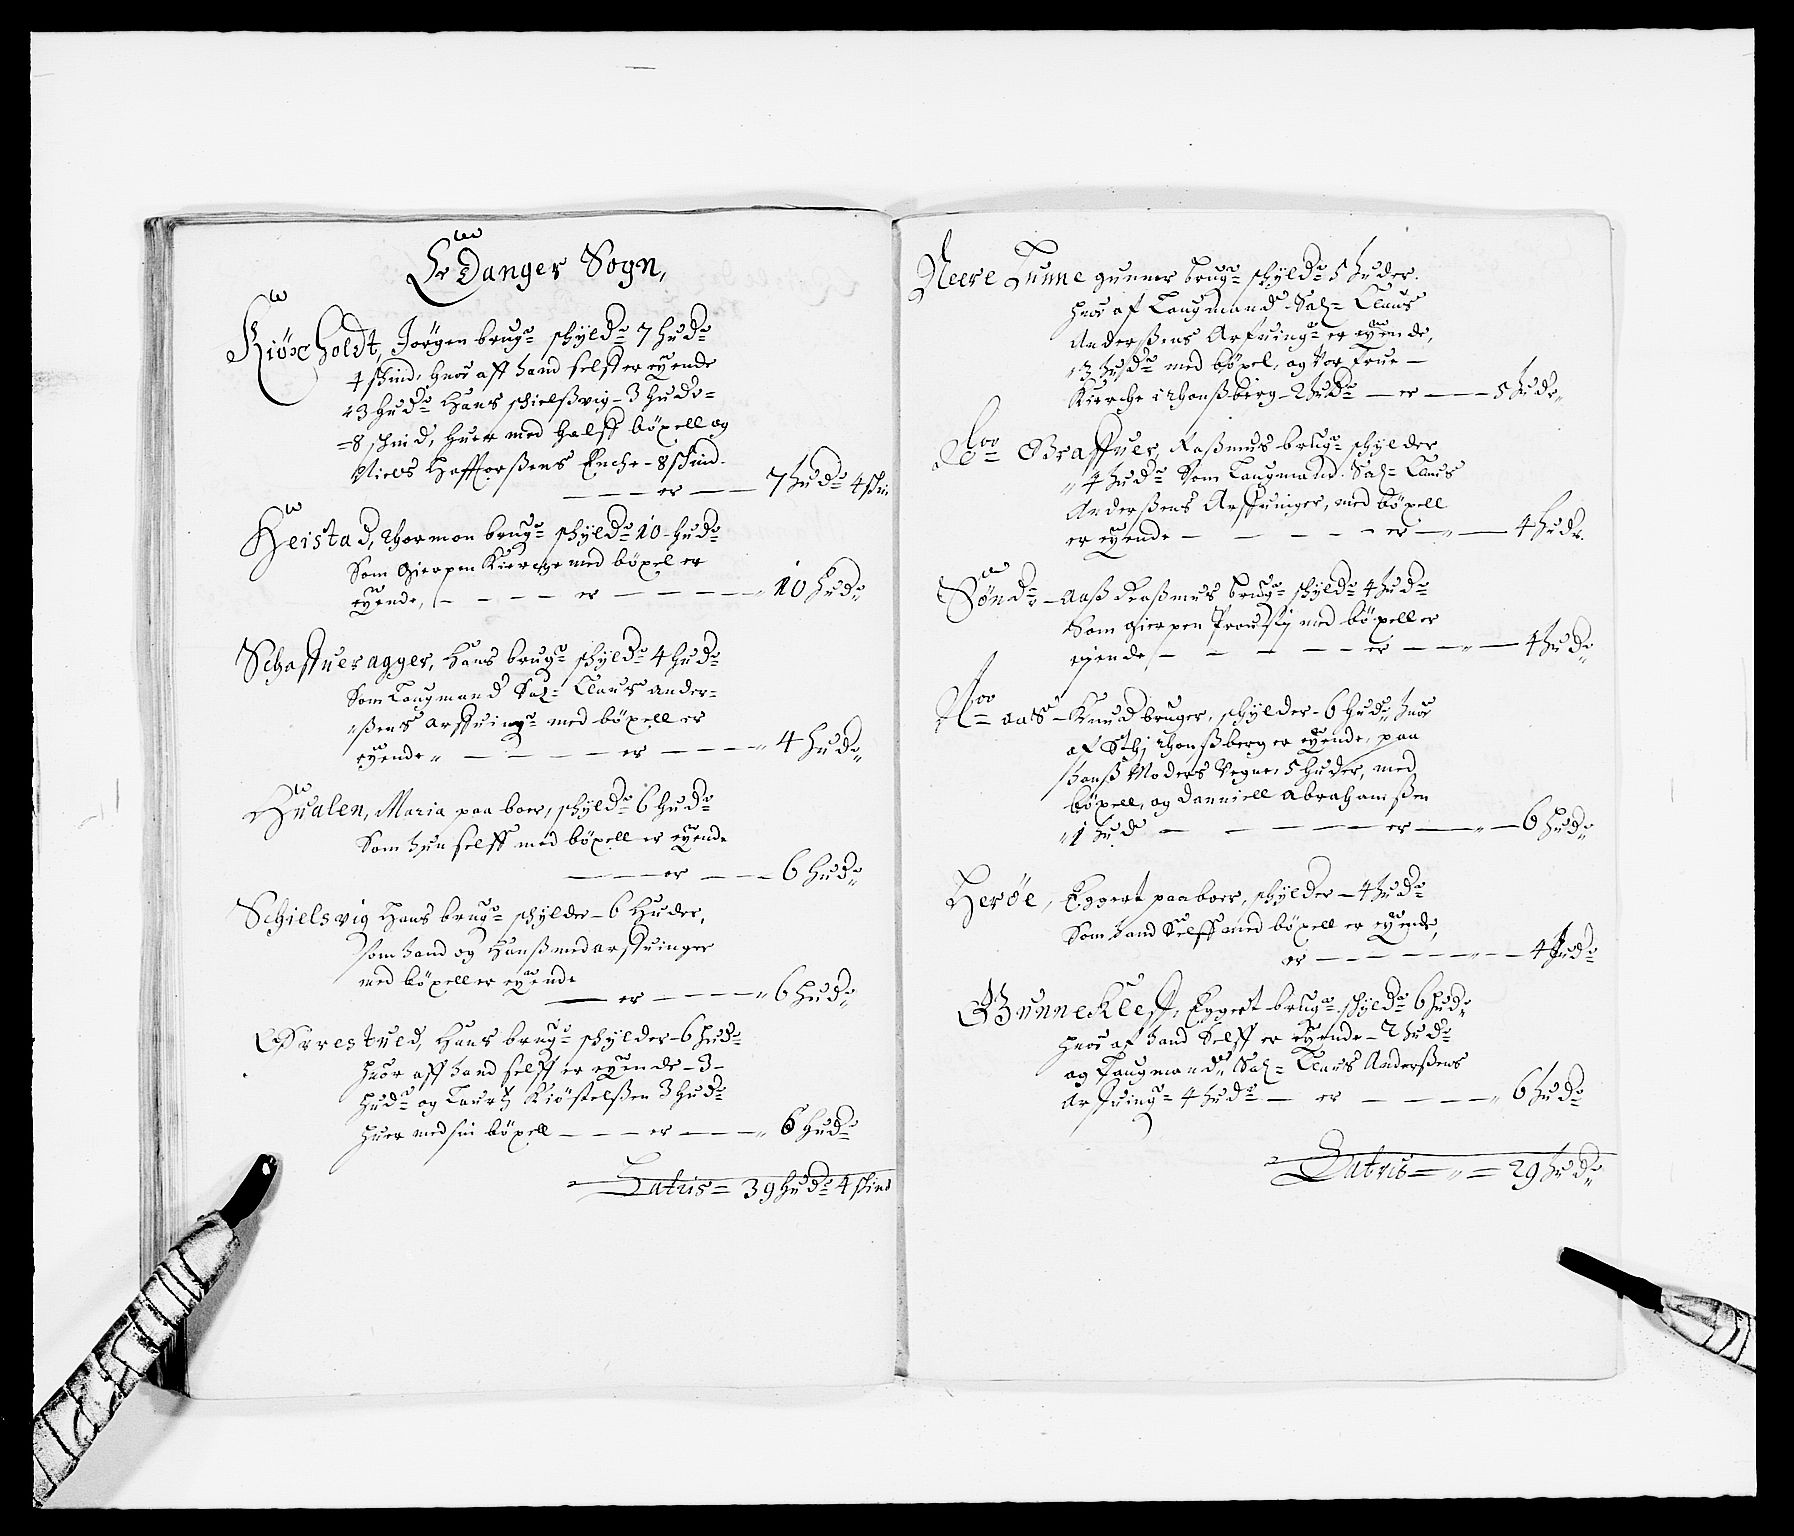 Eedanger Sogn,
Kiöxholdt, Jörgen brugr schyldr 7 hudr
4 skind, huor aff hand self er eyende
3 hudr Hans schielßvig - 3 hudr
8 skind, huer med half böxell og
Niels Hafforßens Enche - 8 skind
er 7 hudr 4 skin
Heistad, Thormon brugr schyldr 10 hudr
Som Gierpen Kierche med böxel er
eyende, er 10 hudr
Schaffueragger, Hans brugr schyldr 4 hudr
Som Laugmand Sal: Claus Ander=
ßens arffuingr med böxell er
eyende er 4 hudr
Hualen, Maria paa boer, schyldr 6 hudr
Som hun selff med böxell er eyende
er 6 hudr
Schielsvig Hans brugr schylder 6 Huder,
som hand og Hanß medarffuinger
med böxell er eyende
er 6 hudr
Ørrestued, Hans brugr schylder 6 hudr
huor aff hand selff er eyende - 3 -
hudr og Lauritz Kiöstelßen 3 hudr
huer med sin böxell er 6 hudr
Latris = 39 hudr 4 skind
Neere Tunne gunner brugr schyldr 5 huder
huor af Laugmand Sal: Claus
Anderßens Arfuingr er eyende,
3 hudr med böxel, og Vor Frue
Kierche i Thonßberg 2 hudr er 5 hudr
Graffuer, Raßmus brugr schylder
4 hudr Som Laugmand Sal: Claus
Anderßens Arffuinger, med böxell
er eyende er 4 hudr
Söndr Aaß Raßmus brugr schyldr 4 hudr
Som gierpen Proustij med böxell er
eyende, er 4 hudr
Aas Knud bruger, schylder 6 hudr huor
af Sthj Thonßberg er eyende, paa
hanß Moders Vegne 5 huder, med
böxell, og Danniell Abrahamßen
1 hud er 6 hudr
Heröe, Eggert paa boer, schylder 4 hudr
Som hand Selff med böxell er eyende,
er 4 hudr
Gunnekleff, Eggert brugr schyldr 6 hudr
huor af hand Selff er eyende 2 hudr
og Laugmand Sal: Claus Anderßens
Arfuingr 4 hudr er 6 hudr
Latris = 29 hudr